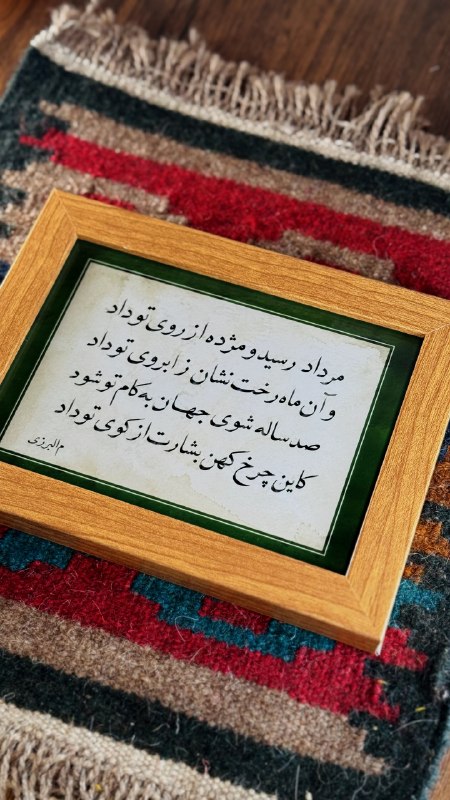 مرداد رسید و مژده از روی تو داد
وآن ماه رخت نشان ز ابروی تو داد
صد ساله شوی جهان به کام تو شود
کاین چرخ کهن بشارت از کوی تو داد
م البرزی